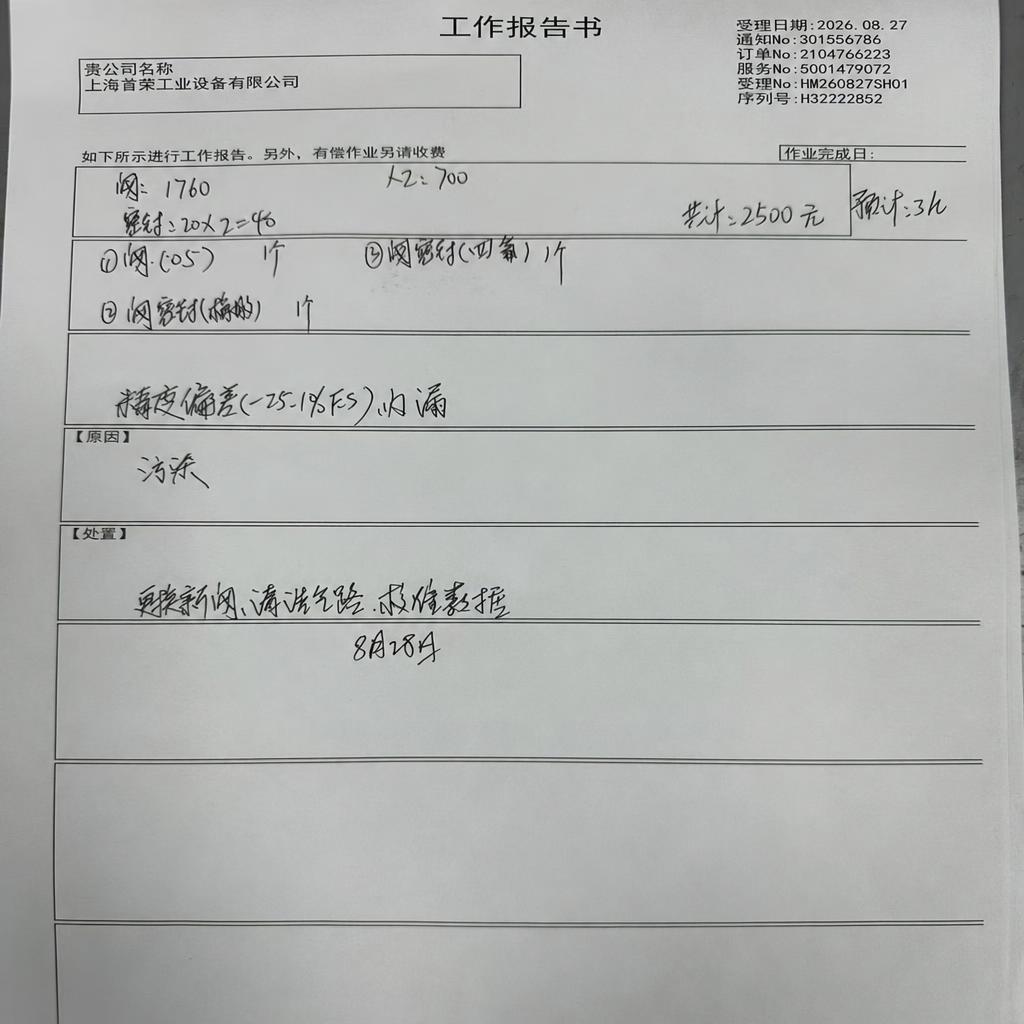 工作报告书
受理日期:2026.08.27
通知No:301556786
订单No:2104766223
服务No:5001479072
受理No:HM260827SH01
序列号:H32222852
贵公司名称
上海首荣工业设备有限公司
如下所示进行工作报告。另外，有偿作业另请收费
作业完成日:
阀: 1760 人工: 700
密封: 20×2=40 共计: 2500元 预计: 3h
①阀(05) 1个 ③阀密封(四氟) 1个
②阀密封(橡胶) 1个
精度偏差(-25.1%F.S)、内漏
【原因】
污染
【处置】
更换新阀、清洁气路、校准数据
8月28日